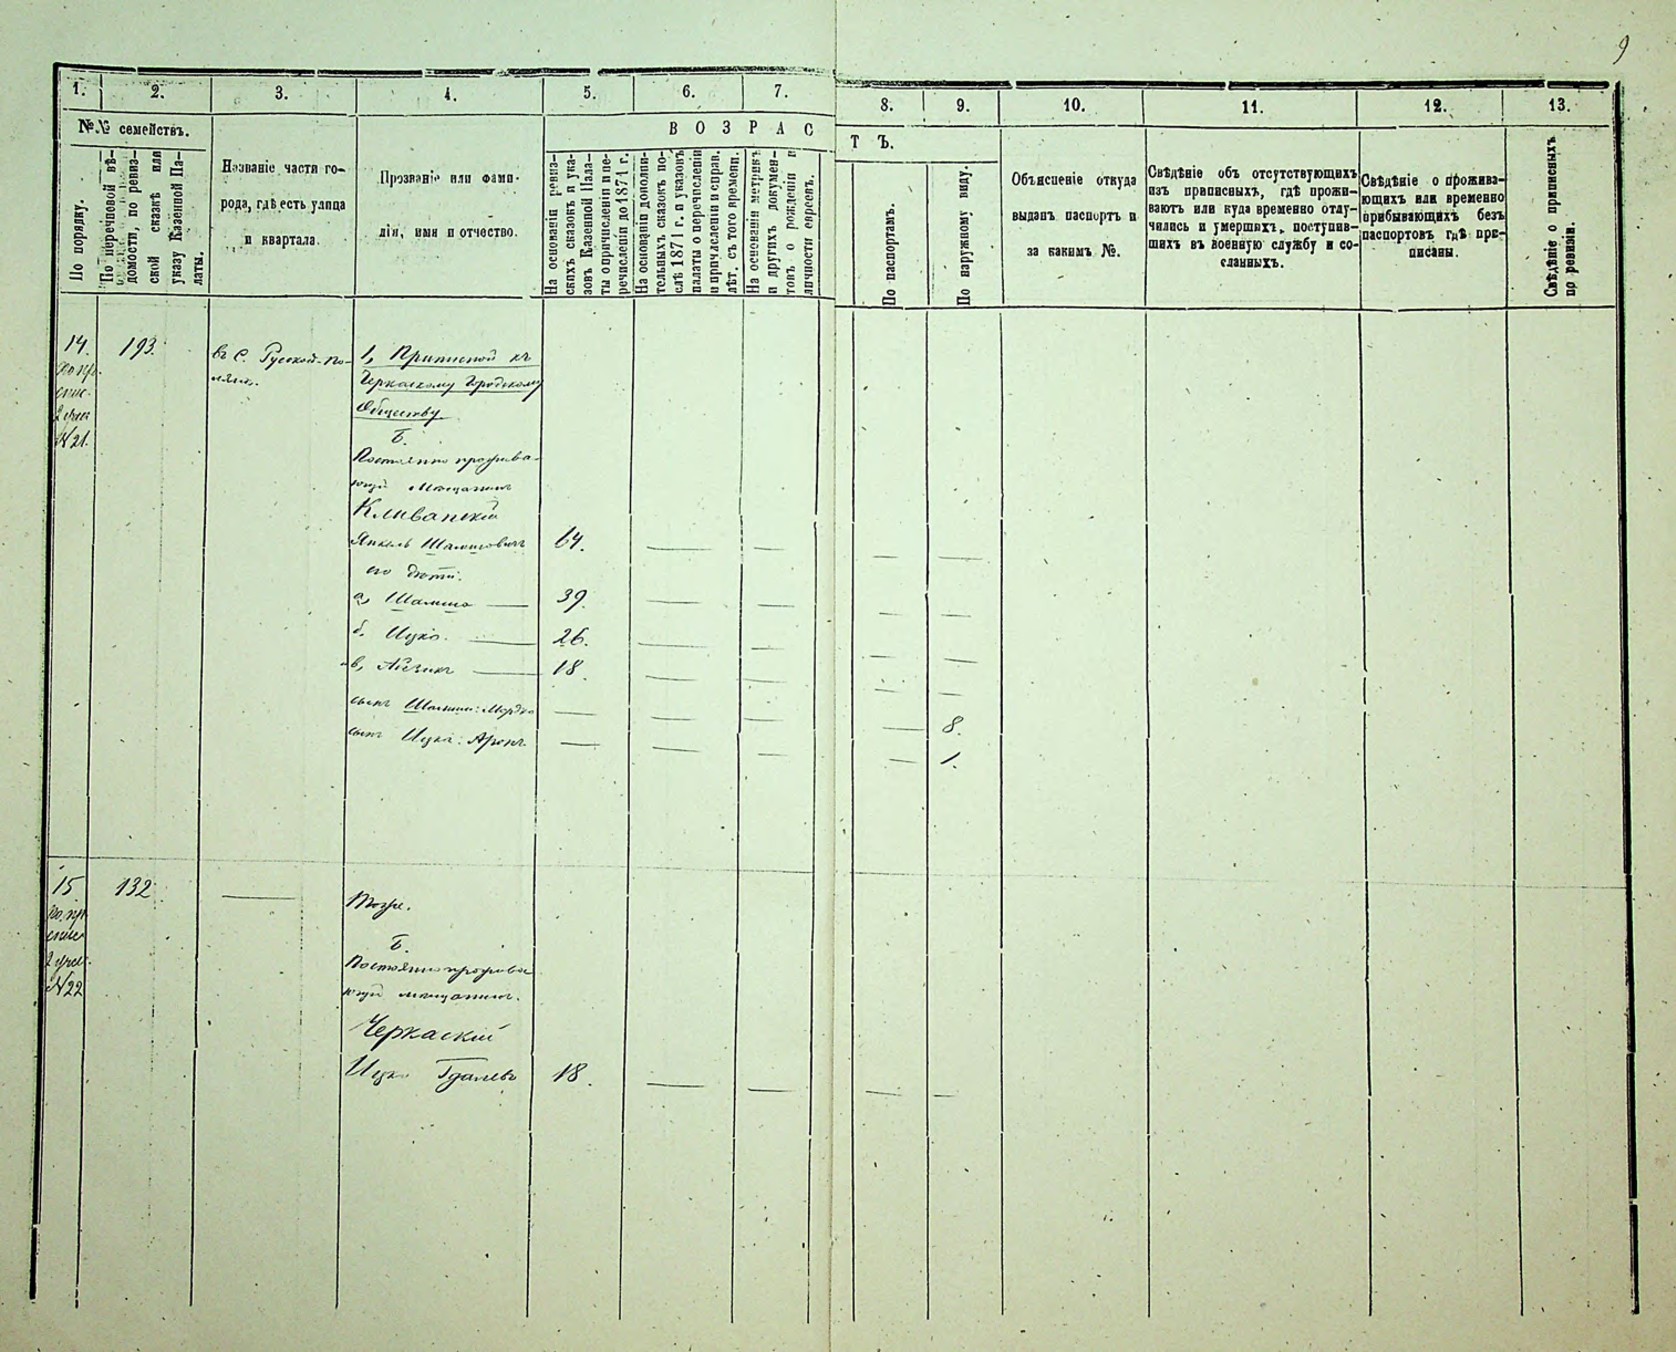 9
1. 2. 3. 4. 5. 6. 7. 8. 9. 10. 11. 12. 13.
№№ семействъ.
По порядку.
По перечновой вѣ-
домости, по ревиз-
ской сказкѣ или
указу Казенной Па-
латы.
Названіе части го-
рода, гдѣ есть улица
и квартала.
Прозваніе или фами-
лія, имя и отчество.
ВОЗРАСТЪ.
На основаніи ревиз-
скихъ сказокъ и ука-
зовъ Казенной Пала-
ты о причисленіи и пе-
речисленіи до 1871 г.
На основаніи дополни-
тельныхъ сказокъ по-
слѣ 1871 г. и указовъ
палаты о перечисленіи
и причисленіи и справ.
лѣт. съ того времени.
На основаніи метрикъ
и другихъ докумен-
товъ о рожденіи и
личности евреевъ.
По паспортамъ.
По наружному виду.
Объясненіе откуда
выданъ паспортъ и
за какимъ №.
Свѣдѣніе объ отсутствующихъ
изъ приписныхъ, гдѣ прожи-
ваютъ или куда временно отлу-
чились и умершихъ, поступив-
шихъ въ военную службу и со-
сланныхъ.
Свѣдѣніе о прожива-
ющихъ или временно
прибывающихъ безъ
паспортовъ гдѣ при-
писаны.
Свѣдѣніе о приписныхъ
по ревизіи.
14. 193. въ с. Русской-По-
ляне.
№ 21.
1, Приписной къ
Черкаскому Городскому
Обществу.
Б.
Постоянно прожива-
ющій Мещанинъ
Кливанскій
Янкель Шамшовичъ 64.
его дѣти:
а, Шамшо 39.
б, Ицко. 26.
в, Айзикъ 18.
сынъ Шамши: Мордко 8.
сынъ Ицка: Аронъ 1.
15 132
№ 22
Тоже.
Б.
Постоянно прожива
ющій мещанинъ.
Черкаскій
Ицко Гдалевъ 18.